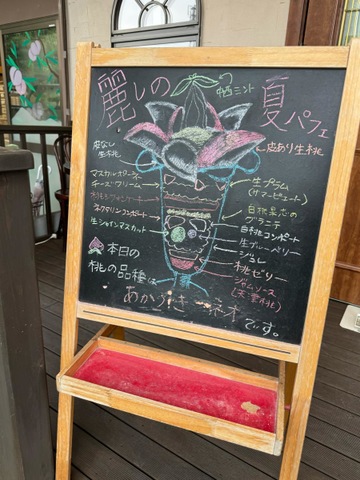 麗しの
夏パフェ
皮なし
生桃
皮あり生桃
マスカルポーネ
チーズクリーム
ネクタリンコンポート
生シャインマスカット
生プラム
(サマービュート)
白桃果志の
グラニテ
白桃コンポート
生ブルーベリー
ジュらし
桃ゼリー
ジャムソース
本日の
桃の品種は
あかつき
です。